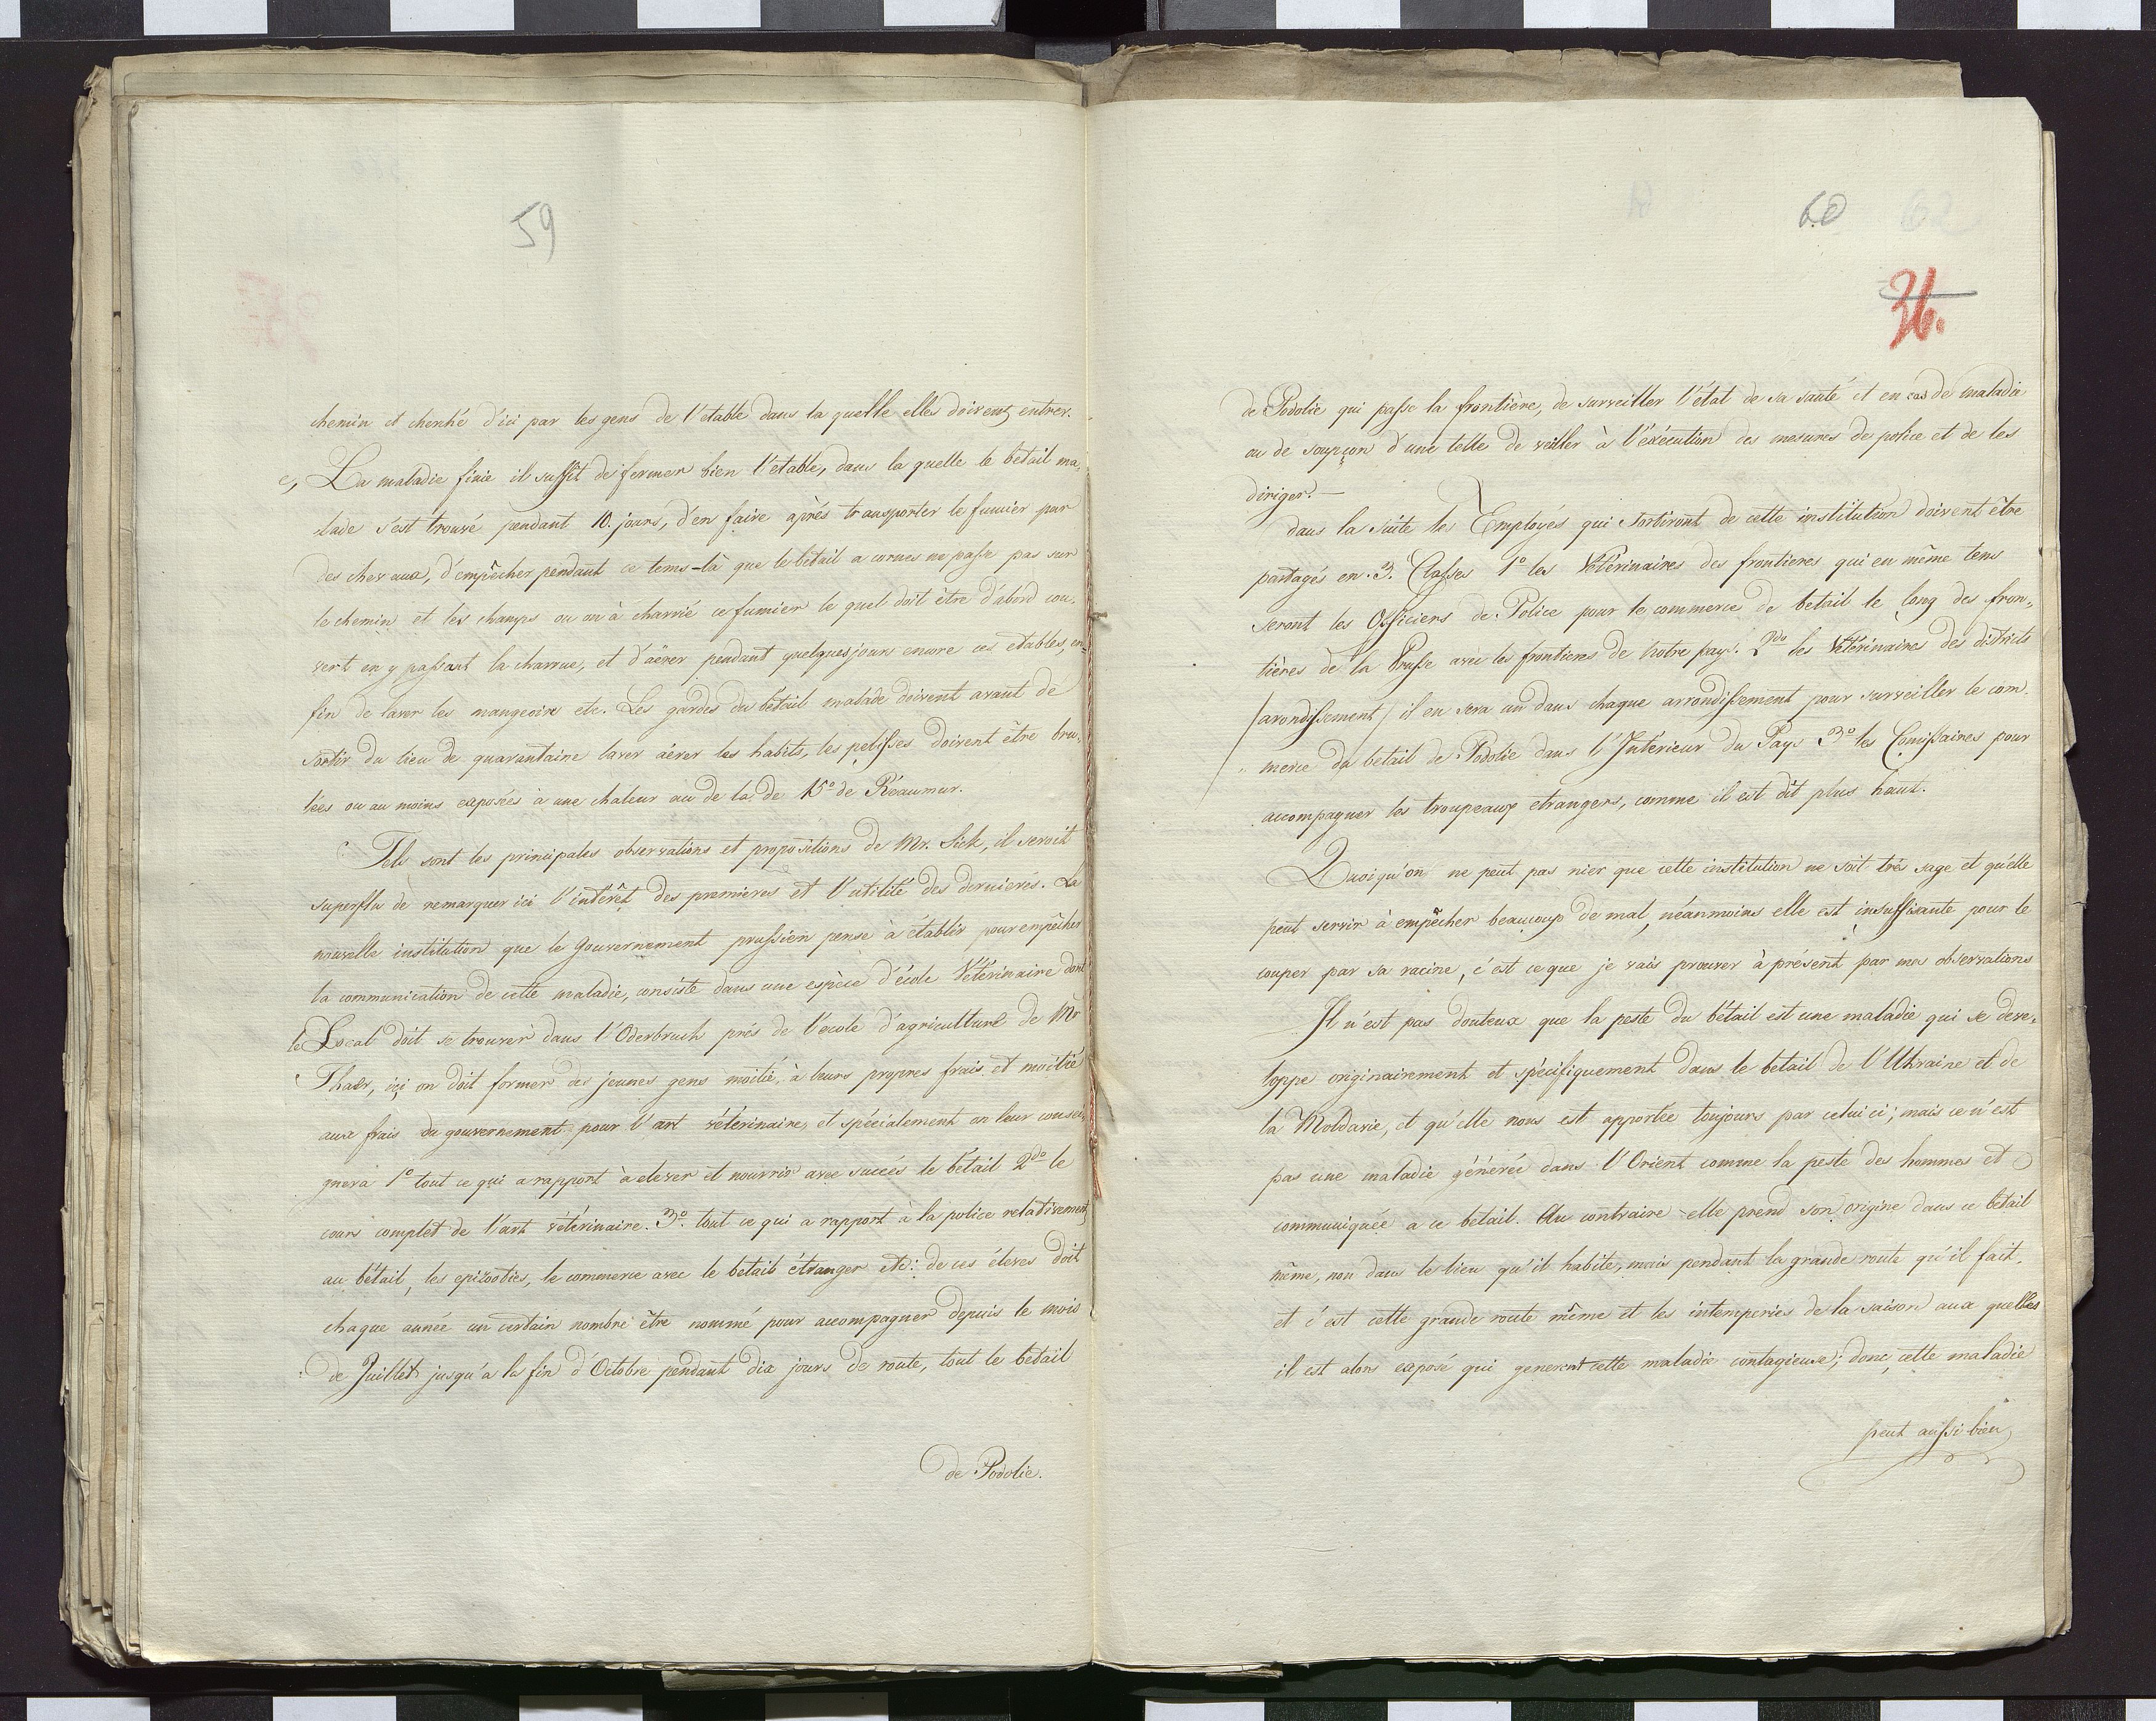 59
chemin et cherché d'ici par les gens de l'etable dans la quelle elles doivent entrer.
e, La maladie finie il suffit de fermer bien l'etable, dans la quelle le betail ma-
lade s'est trouvé pendant 10. jours, d'en faire après transporter le fumier par
des chevaux, d'empêcher pendant ce tems-là que le betail a cornes ne passe pas sur
le chemin et les champs ou on à charrié ce fumier le quel doit être d'abord cou-
vert en y passant la charrue, et d'aërer pendant quelques jours encore ces etables, en-
fin de laver les mangeoire etc. Les gardes du bétail malade doivent avant de
sortir du lieu de quarantaine laver aërer les habits, les pelisses doivent être bru-
lées ou au moins exposées à une chaleur au de la de 15° de Réaumur.
Tels sont les principales observations et propositions de Mr. Sick, il seroit
superflu de remarquer ici l'intérêt des premieres et l'utilité des dernierés. La
nouvelle institution que le Gouvernement prussien pense à établir pour empêcher
la communication de cette maladie, consiste dans une espèce d'école Vétérinaire dont
le Local doit se trouver dans l'Oderbruch prés de l'ecole d'agriculture de Mr
Thaer, ici on doit former des jeunes gens moitié, à leurs propres frais et moitié
aux frais du gouvernement pour l'art vétérinaire, et spécialement on leur ensei-
gnera 1° tout ce qui a rapport à elever et nourrir avec succés le bétail 2do le
cours complet de l'art vétérinaire. 3° tout ce qui a rapport à la police relativement
au bétail, les epizooties, le commerce avec le betail étranger etc: de ces éleves doit
chaque année un certain nombre être nommé pour accompagner depuis le mois
de Juillet jusqu'a la fin d'Octobre pendant dix jours de route, tout le bétail
de Podolie.
60
62
36.
de Podolie qui passe la frontiere, de surveiller l'état de sa santé et en cas de maladie
ou de soupçon d'une telle de veiller à l'éxécution des mesures de police et de les
diriger.—
dans la suite les Employés qui sortiront de cette institution doivent être
partagés en 3. Classes 1° les Vétérinaires des frontieres qui en même tems
seront les Officiers de Police pour le commerce de betail le long des fron-
tières de la Prusse avec les frontieres de notre pays. 2do les Vétérinaires des districts
/arondissement/ il en sera un dans chaque arrondissement pour surveiller le com-
merce du betail de Podolie dans l'Intérieur du Pays 3° les Comissaires pour
accompagner les troupeaux etrangers, comme il est dit plus haut.
Quoiqu'on ne peut pas nier que cette institution ne soit très sage et qu'elle
peut servir à empêcher beaucoup de mal, néanmoins elle est insuffisante pour le
couper par sa racine, c'est ce que je vais prouver à présent par mes observations
Il n'est pas douteux que la peste du bétail est une maladie qui se deve-
loppe originairement et spécifiquement dans le betail de l'Ukraine et de
la Moldavie, et qu'elle nous est apportée toujours par celui ci; mais ce n'est
pas une maladie générée dans l'Orient comme la peste des hommes et
communiquée a ce betail. Au contraire elle prend son origine dans ce bétail
même, non dans le lieu qu'il habite, mais pendant la grande route qu'il fait,
et c'est cette grande route même et les intemperies de la saison aux quelles
il est alors exposé qui generent cette maladie contagieuse; donc cette maladie
peut aussi bien